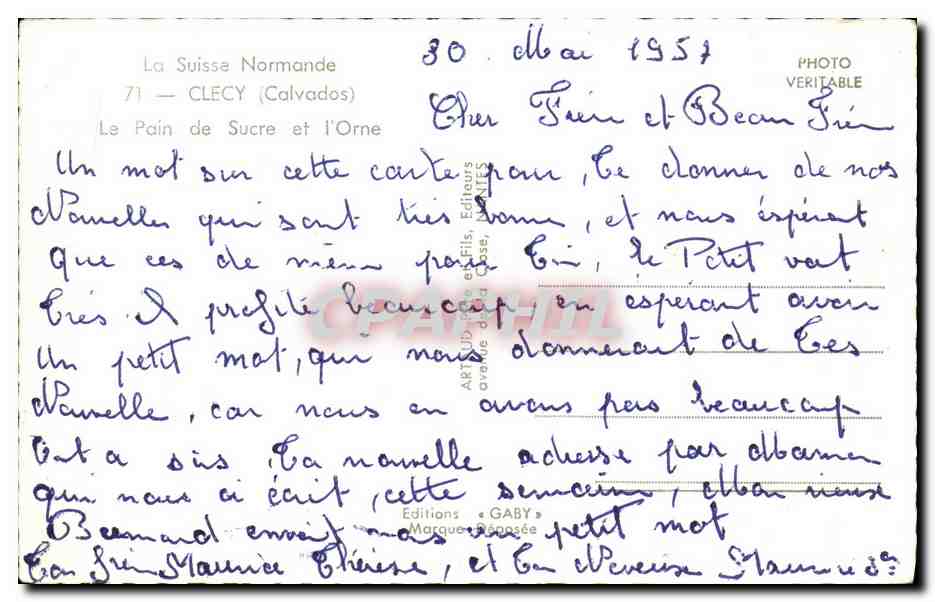 30 Mai 1957
La Suisse Normande
71 — CLECY (Calvados)
Le Pain de Sucre et l'Orne
PHOTO
VERITABLE
Cher Frère et Beau Frère
Un mot sur cette carte pour, te donner de nos
Nouvelles qui sont très bonne, et nous éspérent
que ces de même pour Toi, le Petit vat
très il profite beaucoup en éspérant avoir
Un petit mot, qui nous donnerait de tes
Nouvelle, car nous en avons pas beaucoup
ta nouvelle adresse par Maman
qui nous a écrit, cette semaine, Mon vieux
Bernard envoit nous un petit mot
ton frère Maurice Thérèse, et ton Neveux Maurice
ARTAUD Père et Fils, Editeurs
avenue de la Close, NANTES
Editions « GABY »
Marque Déposée
CPAPHIL